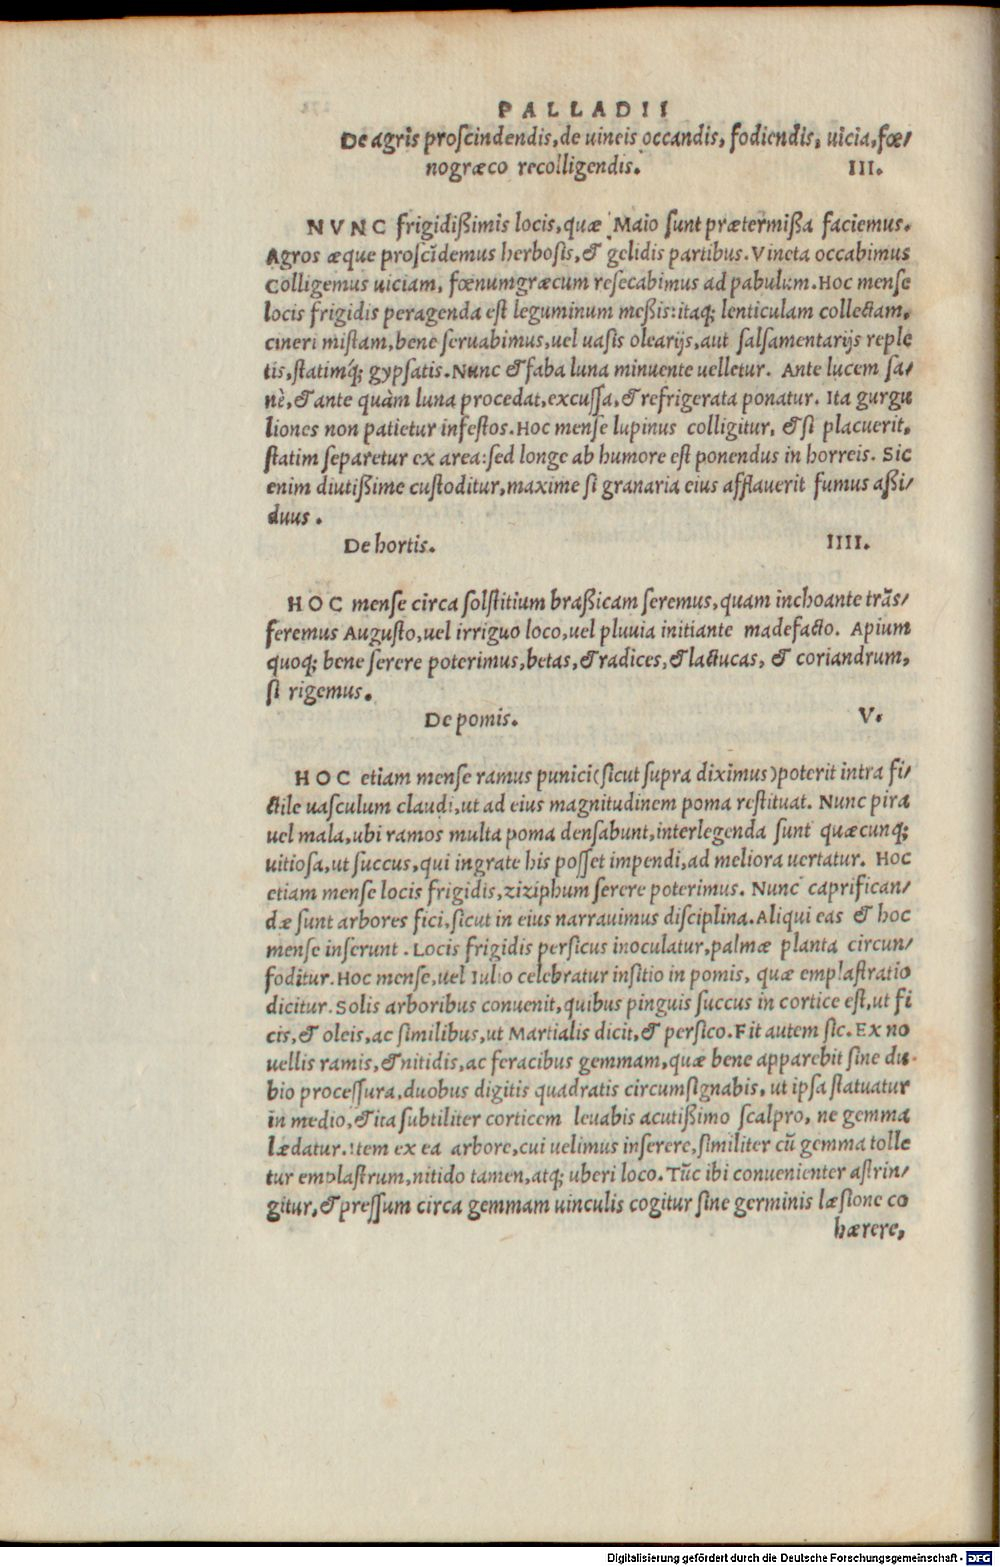 PALLADII
De agris proſcindendis, de uineis occandis, fodiendis, uicia, fœ/
nogræco recolligendis. III.
NVNC frigidißimis locis, quæ Maio ſunt prætermißa faciemus.
Agros æque proſcĩdemus herboſis, & gelidis partibus. Vineta occabimus
Colligemus uiciam, fœnumgræcum reſecabimus ad pabulum. Hoc menſe
locis frigidis peragenda eſt leguminum meßis: itaq; lenticulam collectam,
cineri miſtam, bene ſeruabimus, uel uaſis olearijs, aut ſalſamentarijs reple
tis, ſtatimq́; gypſatis. Nunc & faba luna minuente uelletur. Ante lucem ſa/
nè, & ante quàm luna procedat, excuſſa, & refrigerata ponatur. Ita gurgu
liones non patietur infeſtos. Hoc menſe lupinus colligitur, & ſi placuerit,
ſtatim ſeparetur ex area: ſed longe ab humore eſt ponendus in horreis. Sic
enim diutißime cuſtoditur, maxime ſi granaria eius afflauerit fumus aßi/
duus.
De hortis. IIII.
HOC menſe circa ſolſtitium braßicam ſeremus, quam inchoante trãſ/
feremus Auguſto, uel irriguo loco, uel pluuia initiante madefacto. Apium
quoq; bene ſerere poterimus, betas, & radices, & lactucas, & coriandrum,
ſi rigemus.
De pomis. V.
HOC etiam menſe ramus punici (ſicut ſupra diximus) poterit intra fi/
ctile uaſculum claudi, ut ad eius magnitudinem poma reſtituat. Nunc pira
uel mala, ubi ramos multa poma denſabunt, interlegenda ſunt quæcunq;
uitioſa, ut ſuccus, qui ingrate his poſſet impendi, ad meliora uertatur. Hoc
etiam menſe locis frigidis, ziziphum ſerere poterimus. Nunc caprifican/
dæ ſunt arbores fici, ſicut in eius narrauimus diſciplina. Aliqui eas & hoc
menſe inſerunt. Locis frigidis perſicus inoculatur, palmæ planta circun/
foditur. Hoc menſe, uel Iulio celebratur inſitio in pomis, quæ emplaſtratio
dicitur. Solis arboribus conuenit, quibus pinguis ſuccus in cortice eſt, ut fi
cis, & oleis, ac ſimilibus, ut Martialis dicit, & perſico. Fit autem ſic. Ex no
uellis ramis, & nitidis, ac feracibus gemmam, quæ bene apparebit ſine du-
bio proceſſura, duobus digitis quadratis circumſignabis, ut ipſa ſtatuatur
in medio, & ita ſubtiliter corticem leuabis acutißimo ſcalpro, ne gemma
lædatur. Item ex ea arbore, cui uelimus inſerere, ſimiliter cũ gemma tolle
tur emplaſtrum, nitido tamen, atq; uberi loco. Tũc ibi conuenienter aſtrin/
gitur, & preſſum circa gemmam uinculis cogitur ſine germinis læſione co
hærere,
Digitalisierung gefördert durch die Deutsche Forschungsgemeinschaft - DFG